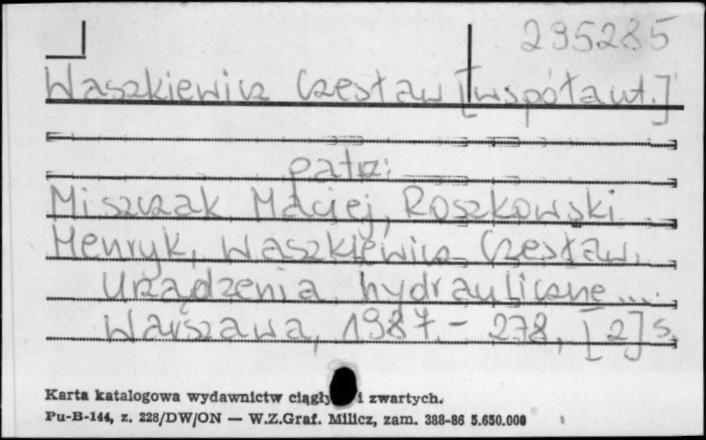 295285
Waszkiewicz Czesław [współaut.]
patrz:
Miszczak Maciej, Roszkowski
Henryk, Waszkiewicz Czesław.
Urządzenia hydrauliczne ...
Warszawa, 1987. - 278, [2] s.
Karta katalogowa wydawnictw ciągły i zwartych.
Pu-B-144, z. 228/DW/ON — W.Z.Graf. Milicz, zam. 388-86 5.650.000